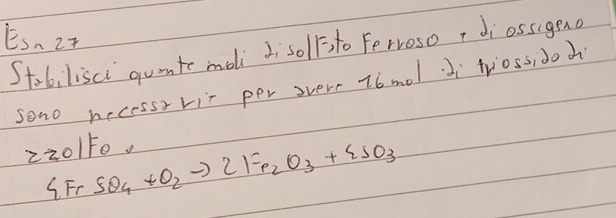 Es n 27
Stabilisci quante moli di solfato ferroso, di ossigeno
sono necessarie per avere 16 mol di triossido di
zzolfo.
4FeSO4 + O2 → 2Fe2O3 + 4SO3